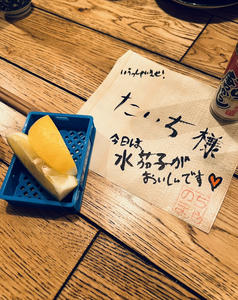 いらっしゃいませ!
たいち様
今日は
水茄子が
おいしいんです♥